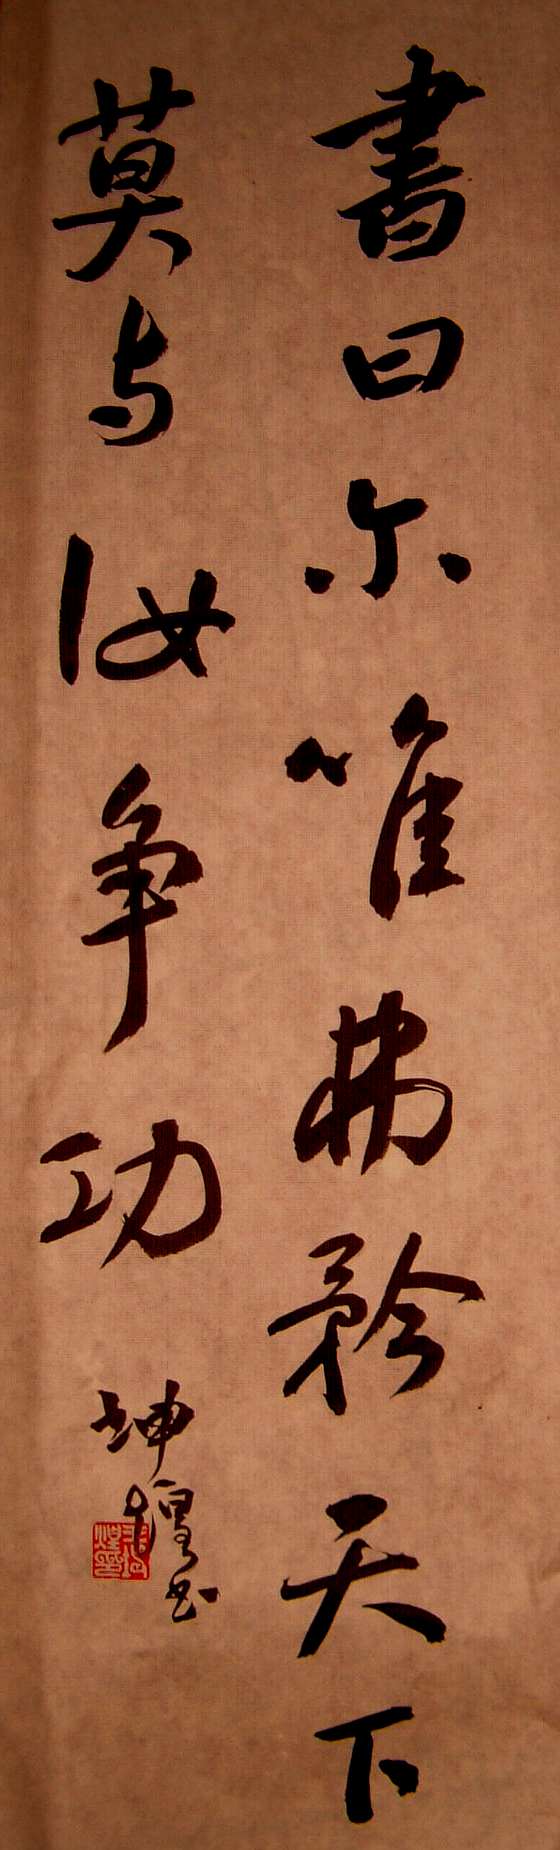 書曰尔唯弗矜天下
莫与汝争功
坤煌书